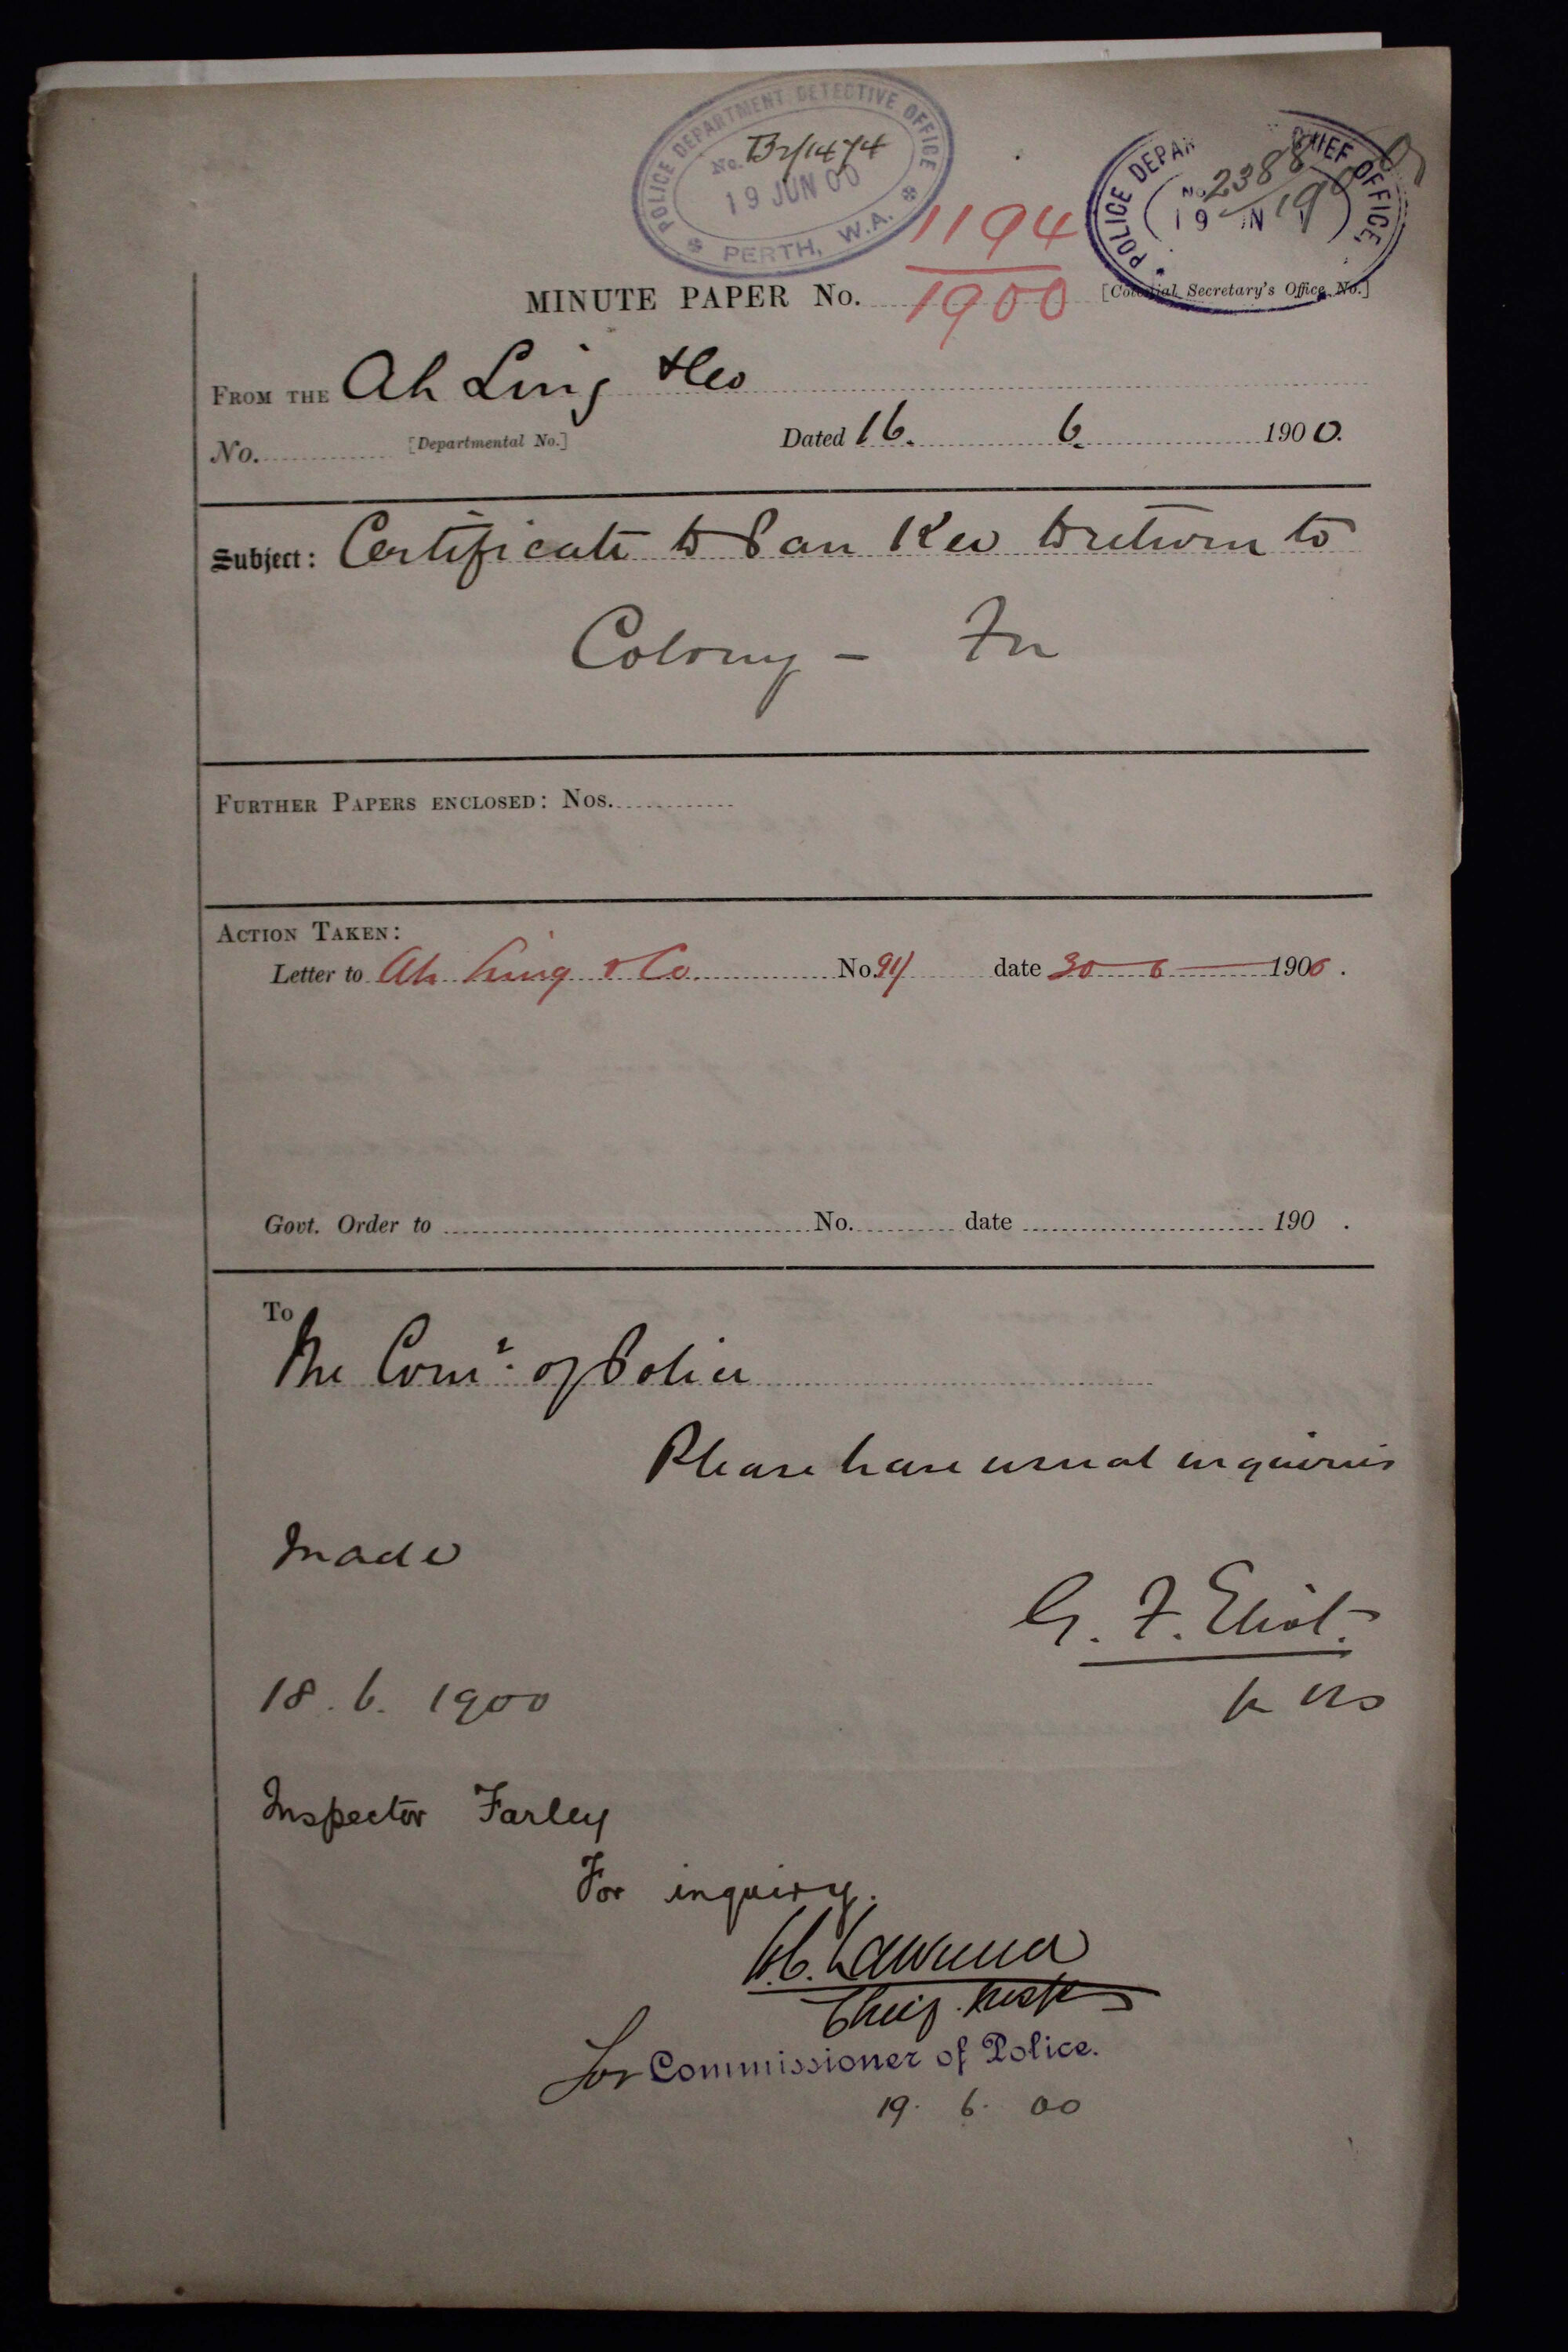 POLICE DEPARTMENT DETECTIVE OFFICE
No. B2/1474
19 JUN 00
PERTH, W.A.
POLICE DEPAR CHIEF OFFICE
No 2388
19 N 190
1194
MINUTE PAPER No. 1900 [Colonial Secretary's Office No.]
FROM THE Ah Ling & Co
No. [Departmental No.] Dated 16. 6. 1900.
Subject: Certificate to Pan Kee to return to
Colony - For
FURTHER PAPERS ENCLOSED: Nos.
ACTION TAKEN:
Letter to Ah Ling & Co. No. 94 date 30 - 6 - 1900.
Govt. Order to No. date 190 .
To
The Comr. of Police
Please have usual inquiries
made
G. F. Eliot.
18. 6. 1900
Inspector Farley
For inquiry.
Lawrence
Chief Inspr
For Commissioner of Police.
19. 6. 00